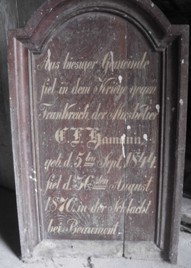 Aus hiesiger Gemeinde
fiel in dem Kriege gegen
Frankreich der Musketier
C. F. Hamann
geb. d. 5ten Sept. 1844
fiel d. 30sten August
1870 in der Schlacht
bei Beaumont.